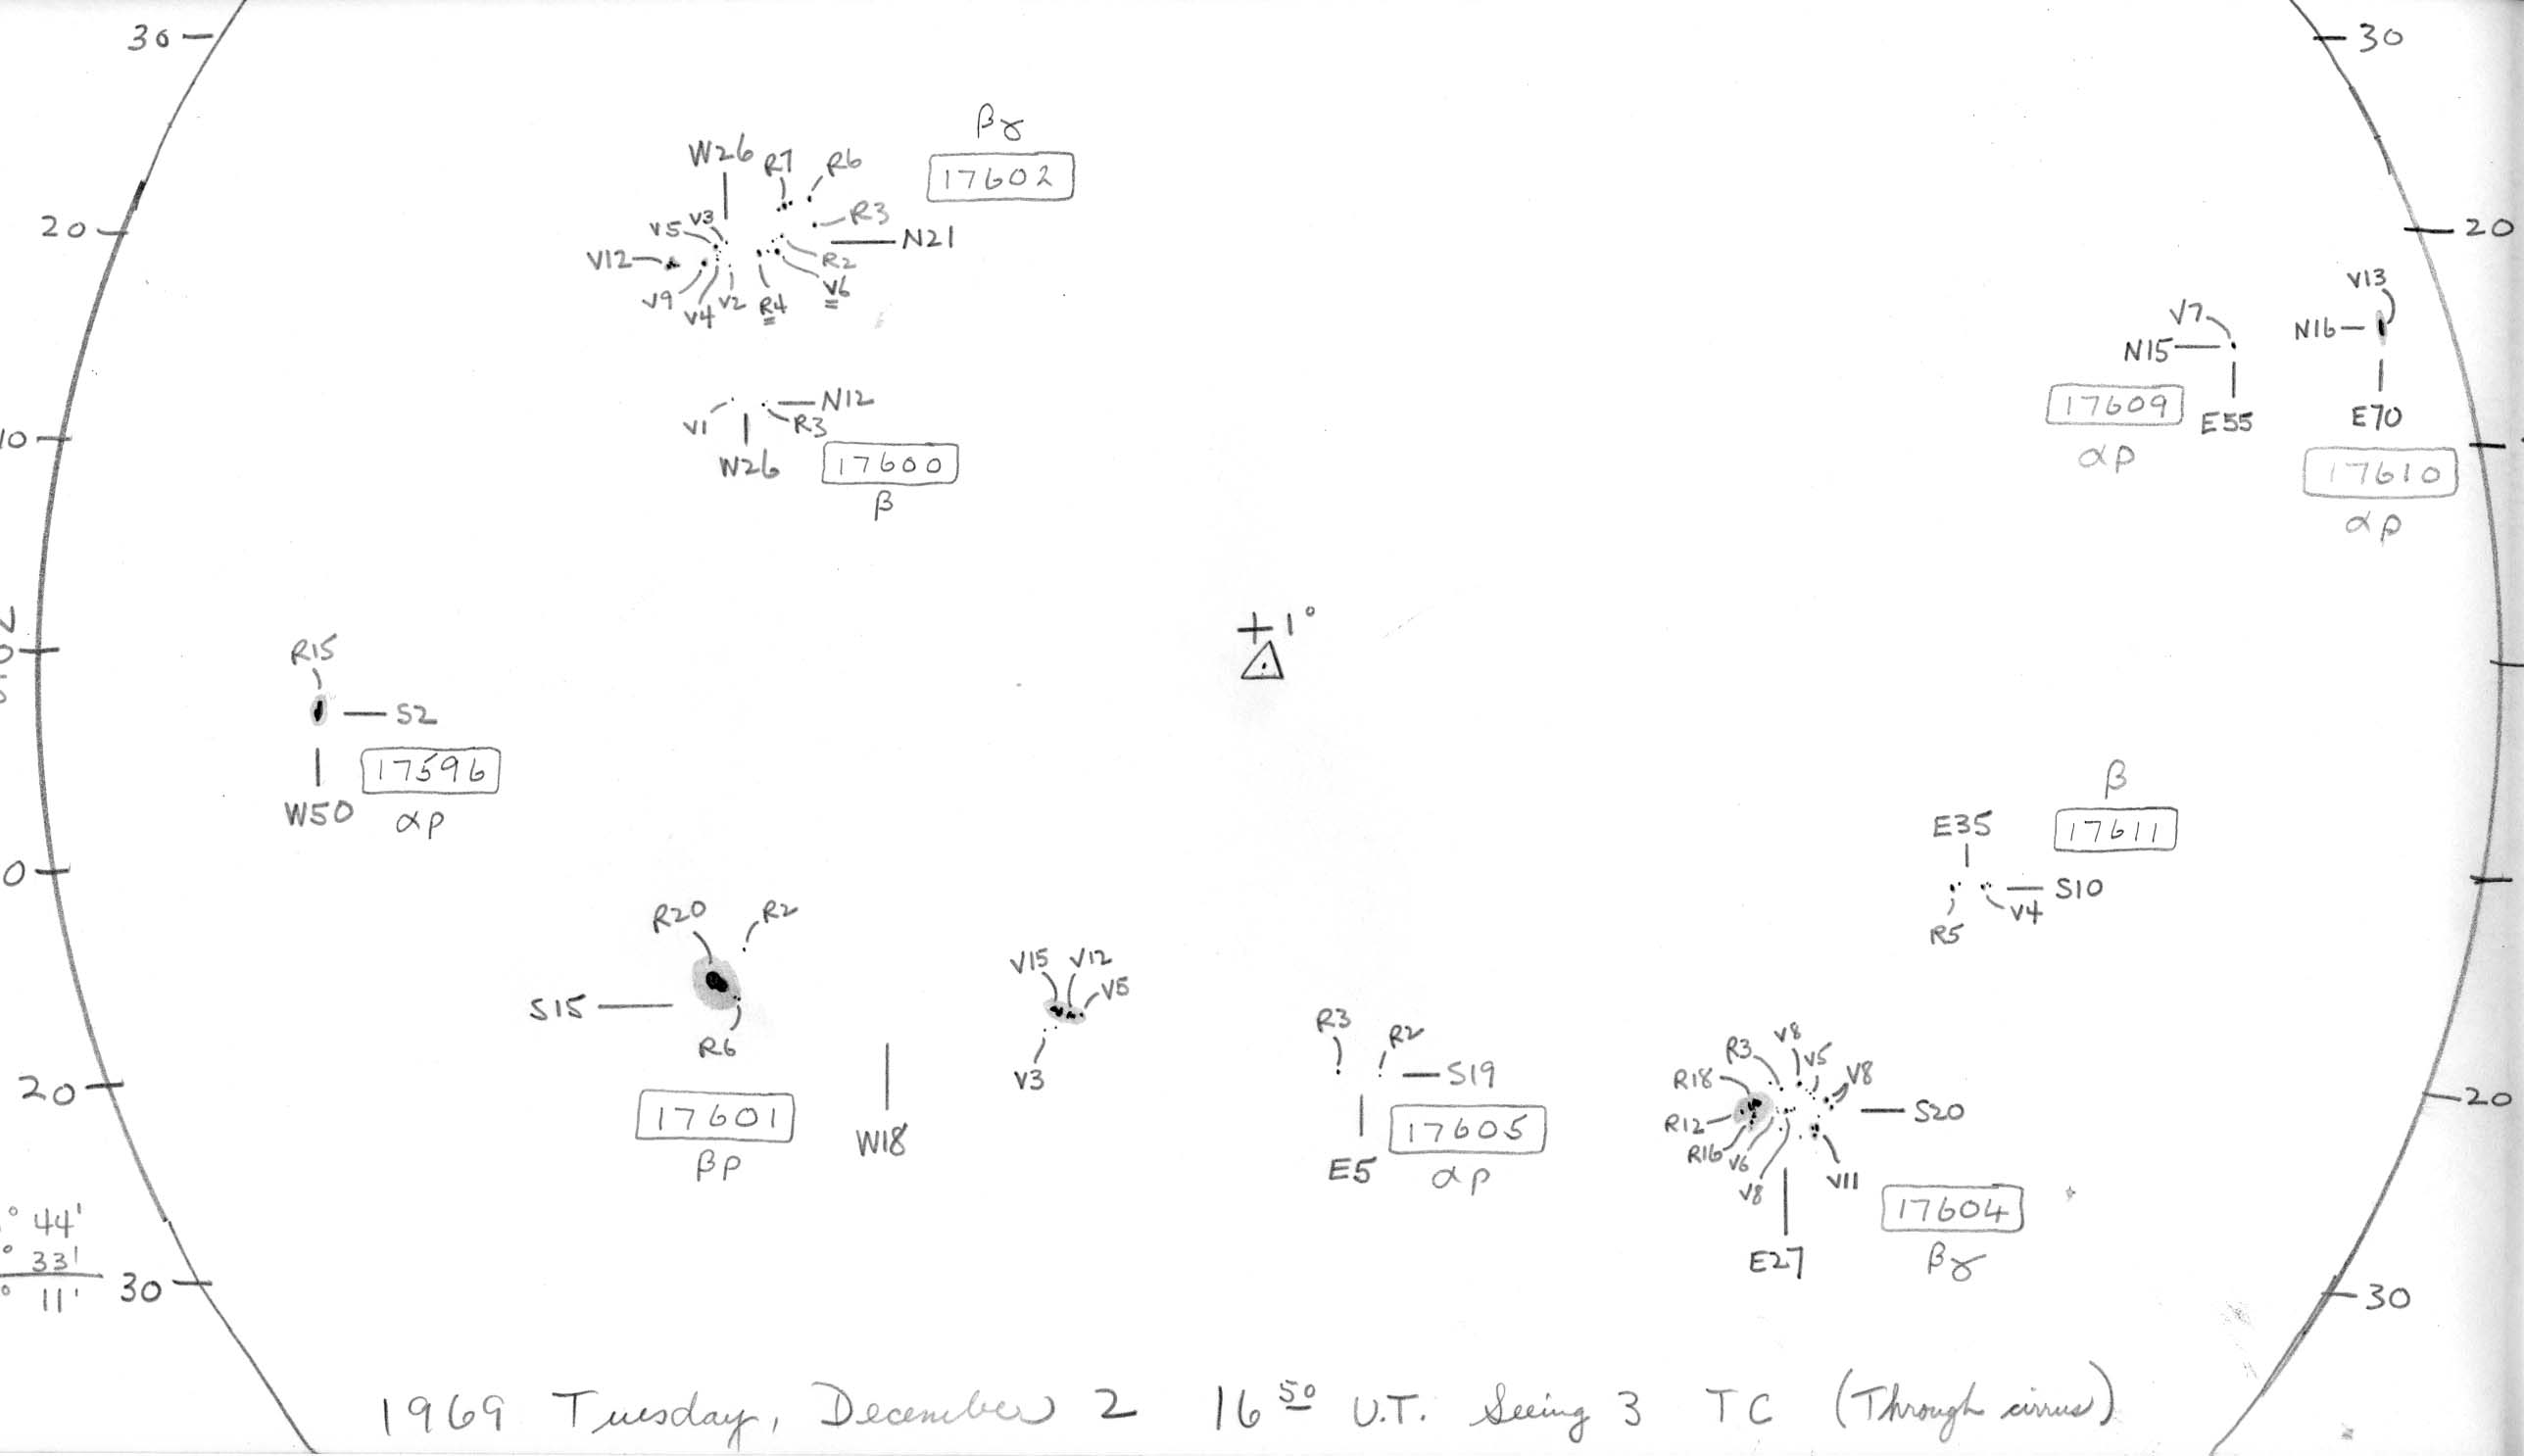 30
30
βγ
W26
R7
R6
17602
R3
V3
V5
20
N21
20
V12
R2
V6
V9
V4
V2
R4
V13
V7
N16
N15
N12
V1
R3
17609
E55
E70
10
αp
W26
17600
17610
β
αp
+1°
R15
S2
17596
W50
αp
β
E35
17611
0
S10
V4
R5
R20
R2
V15
V12
V5
S15
R6
R3
R2
V8
R3
V5
V8
S19
R18
V3
20
17601
W18
17605
R12
S20
20
R16
V6
βp
E5
αp
V8
V11
17604
° 44'
° 33'
° 11'
30
E27
βγ
30
1969 Tuesday, December 2 16 50 U.T. Seeing 3 TC (Through cirrus)